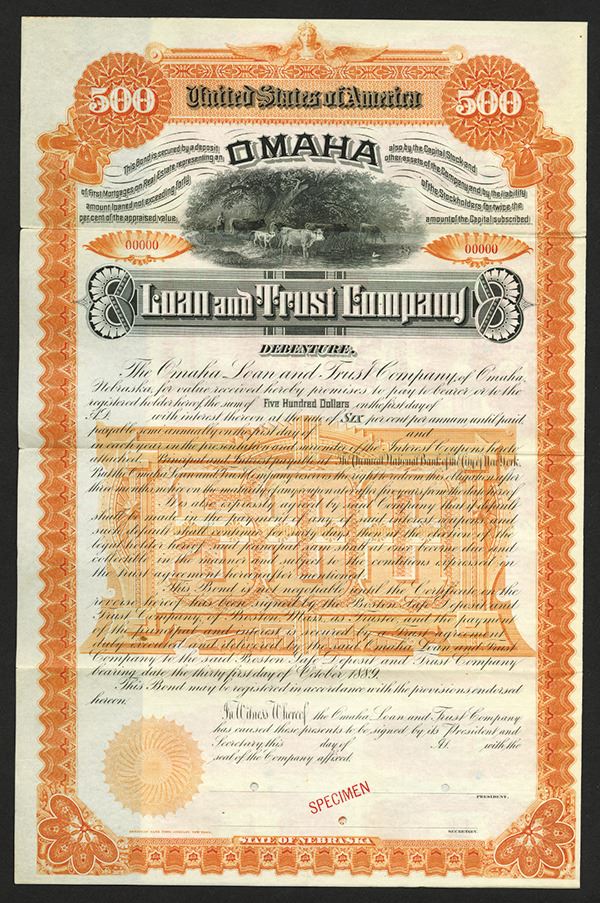 500 United States of America 500
OMAHA
This Bond is secured by a deposit
of First Mortgages on Real Estate representing an
amount loaned not exceeding forty
per cent of the appraised value.
also by the Capital Stock and
other assets of the Company and by the liability
of the Stockholders for twice the
amount of the Capital subscribed
00000 00000
Loan and Trust Company
DEBENTURE.
The Omaha Loan and Trust Company, of Omaha,
Nebraska, for value received hereby promises to pay to bearer or to the
registered holder hereof the sum of Five Hundred Dollars on the first day of
A.D. with interest thereon at the rate of Six per cent per annum until paid
payable semi annually on the first day of and
in each year on the presentation and surrender of the Interest Coupons hereto
attached. Principal and Interest payable at The Chemical National Bank of the City of New York.
But the Omaha Loan and Trust Company reserves the right to pay this Debenture after
three months notice on the maturity of any coupon after five years from the date hereof.
It is also expressly agreed by said Company that if default
shall be made in the payment of any of said interest coupons and
such default shall continue for ninety days then at the option of the
legal holder hereof the principal sum shall at once become due and
collectible in the manner and subject to the conditions expressed in
the trust agreement hereinafter mentioned.
This Bond is not negotiable until the Certificate on the
reverse hereof has been signed by the Boston Safe Deposit and
Trust Company of Boston, Mass. as Trustee and the payment
of the principal and interest is secured by a trust agreement
duly executed and delivered by the said Omaha Loan and Trust
Company to the said Boston Safe Deposit and Trust Company
bearing date the thirty first day of October 1889.
This Bond may be registered in accordance with the provisions endorsed
hereon.
In Witness Whereof the Omaha Loan and Trust Company
has caused these presents to be signed by its President and
Secretary, this day of A. with the
seal of the Company affixed.
PRESIDENT.
SPECIMEN
AMERICAN BANK NOTE COMPANY, NEW YORK. SECRETARY.
STATE OF NEBRASKA